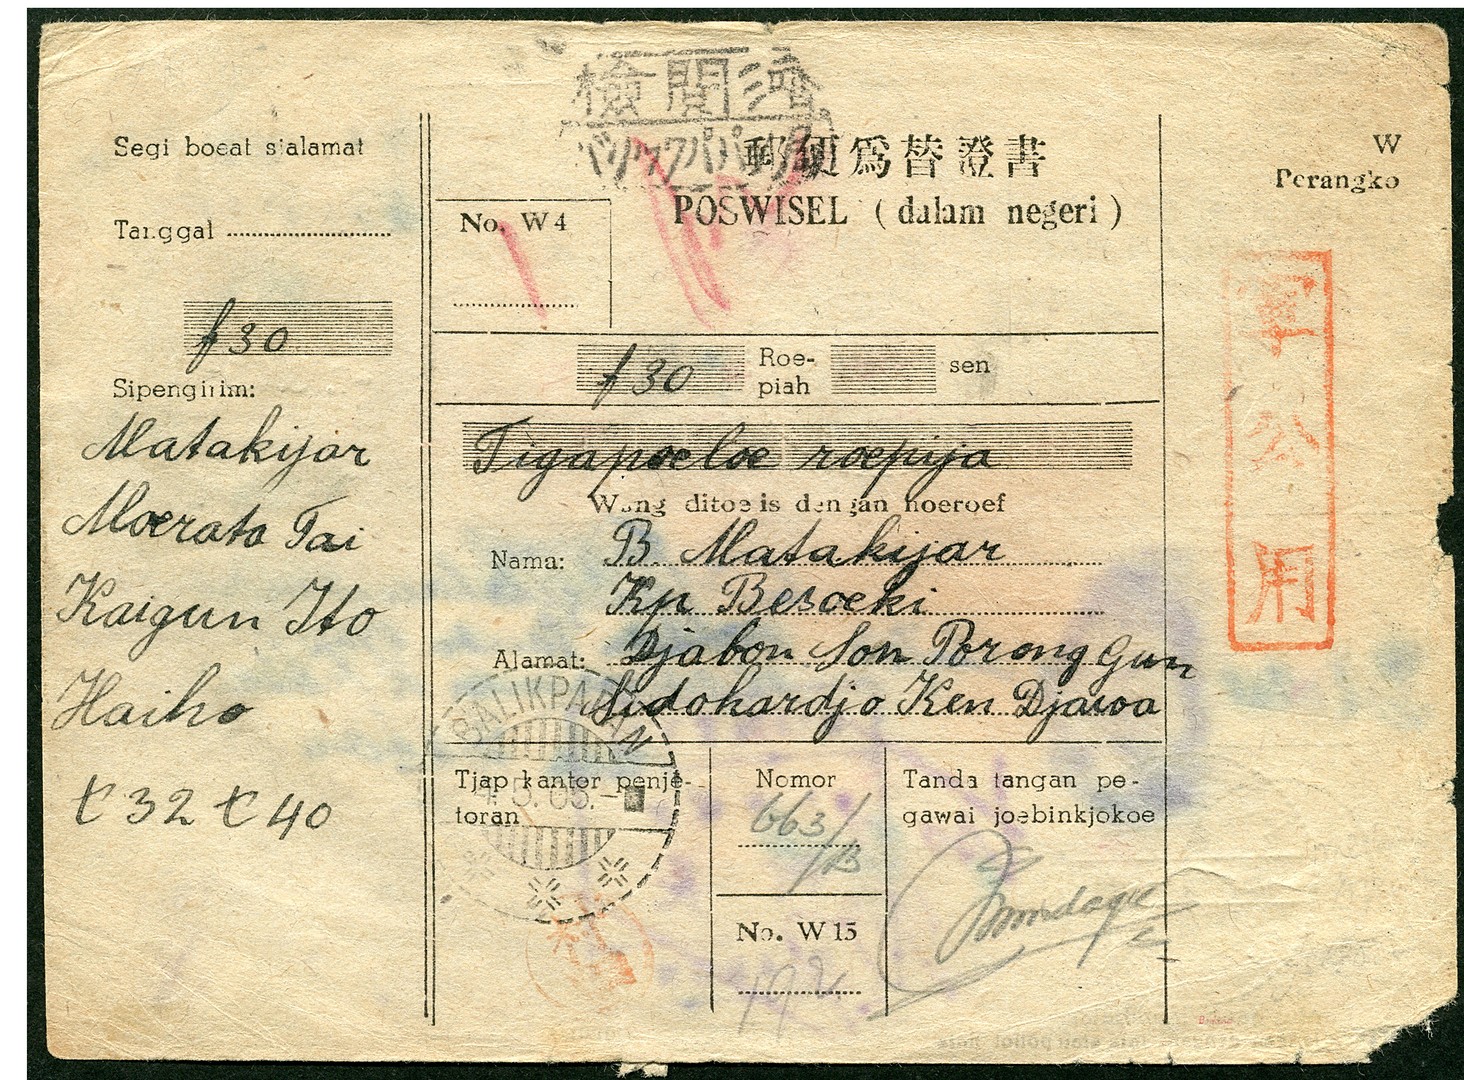 檢閲濟
バリックパパン
郵便爲替證書
POSWISEL (dalam negeri)
Segi boeat s'alamat
Tanggal
f 30
Sipengirim:
Matakijar
Moerata Tai
Kaigun Ito
Haiho
t 32 t 40
No. W 4
f 30 Roe-
piah sen
Tigapoeloe roepija
Wang ditoelis dengan hoeroef
Nama: B. Matakijar
Kp Besoeki
Alamat: Djabon Son Porong Gun
Sidohardjo Ken Djawa
BALIKPAPAN
Tjap kantor penje-
toran
Nomor
663/B
No. W 15
192
Tanda tangan pe-
gawai joebinkjokoe
W
Perangko
軍公用